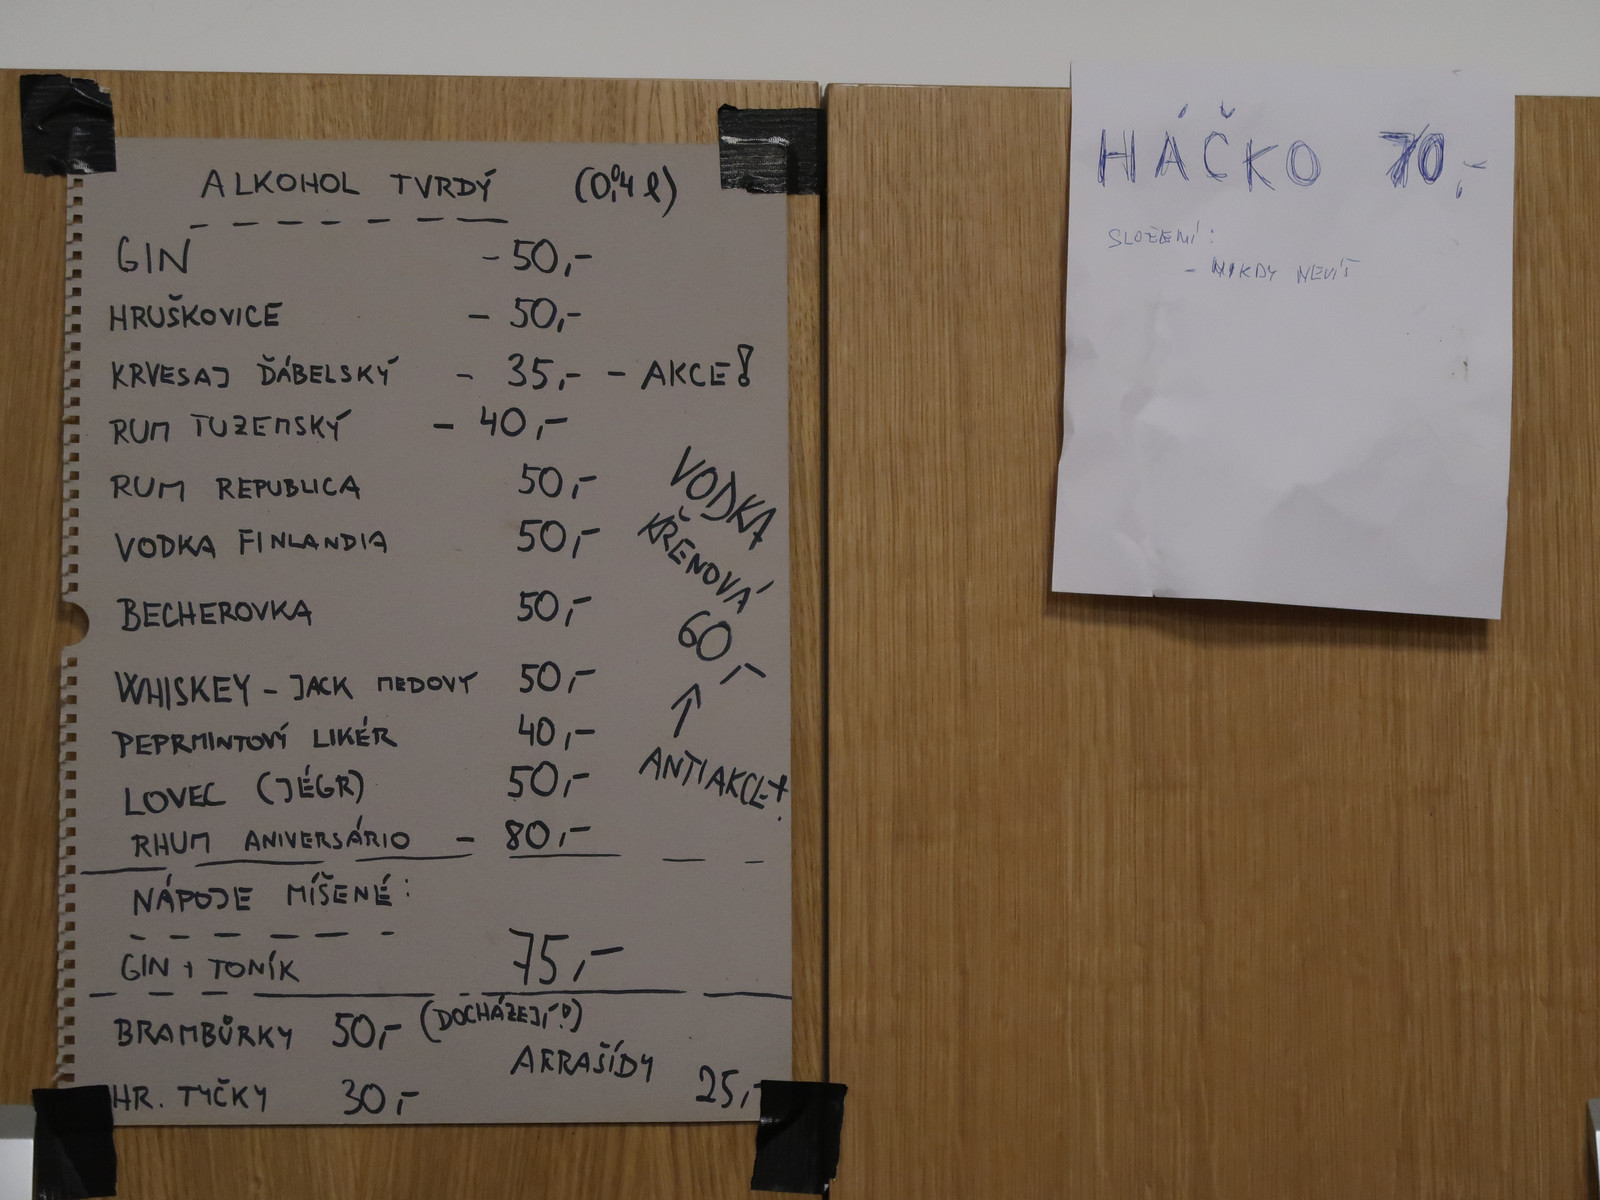 ALKOHOL TVRDÝ (0,04 l)
GIN - 50,-
HRUŠKOVICE - 50,-
KRVESAJ ĎÁBELSKÝ - 35,- - AKCE!
RUM TUZEMSKÝ - 40,-
RUM REPUBLICA 50,-
VODKA FINLANDIA 50,-
BECHEROVKA 50,-
WHISKEY - JACK MEDOVÝ 50,-
PEPRMINTOVÝ LIKÉR 40,-
LOVEC (JÉGR) 50,-
RHUM ANIVERSÁRIO - 80,-
VODKA
KŘENOVÁ
60,-
↑
ANTIAKCE!
NÁPOJE MÍŠENÉ:
GIN + TONÍK 75,-
BRAMBŮRKY 50,- (DOCHÁZEJÍ!)
ARAŠÍDY 25,-
HR. TYČKY 30,-
HÁČKO 70,-
SLOŽENÍ:
- NIKDY NEVÍŠ